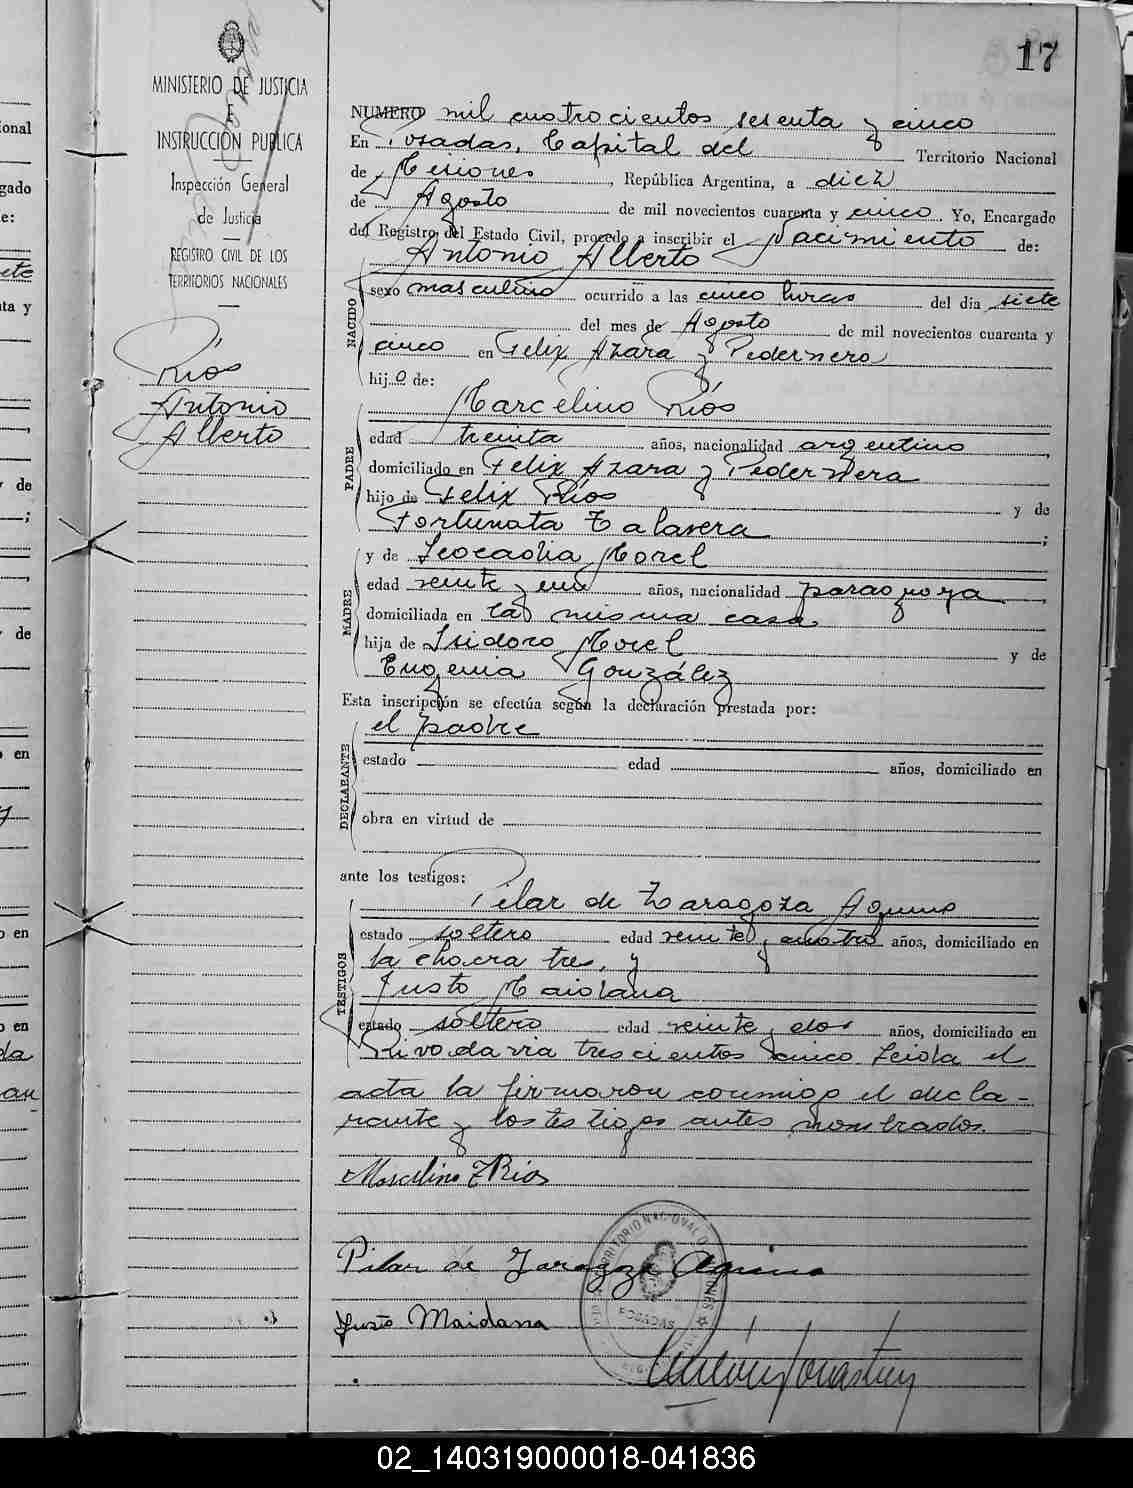 17
MINISTERIO DE JUSTICIA
E
INSTRUCCIÓN PUBLICA
Inspección General
de Justicia
REGISTRO CIVIL DE LOS
TERRITORIOS NACIONALES
Ríos
Antonio
Alberto
NUMERO mil cuatrocientos sesenta y cinco
En Posadas, Capital del Territorio Nacional
de Misiones, República Argentina, a diez
de Agosto de mil novecientos cuarenta y cinco. Yo, Encargado
del Registro del Estado Civil, procedo a inscribir el Nacimiento de:
Antonio Alberto
NACIDO
sexo masculino ocurrido a las cinco horas del día siete
del mes de Agosto de mil novecientos cuarenta y
cinco en Felix Azara y Pedernera
hijo de:
Marcelino Ríos
PADRE
edad treinta años, nacionalidad argentino,
domiciliado en Felix Azara y Pedernera
hijo de Felix Ríos y de
Fortunata Talavera;
MADRE
y de Leocadia Morel
edad veinte y un años, nacionalidad paraguaya,
domiciliada en la misma casa
hija de Isidoro Morel y de
Eugenia González
Esta inscripción se efectúa según la declaración prestada por:
el padre
DECLARANTE
estado edad años, domiciliado en
obra en virtud de
ante los testigos:
Pilar de Zaragoza Aquino
TESTIGOS
estado soltero edad veinte y cuatro años, domiciliado en
la chacra tres, y
Justo Maidana
estado soltero edad veinte y dos años, domiciliado en
Rivodavia trescientos cinco Leida el
acta la firmaron conmigo el decla-
rante y los testigos antes nombrados.
Marcelino Rios
Pilar de Zaragoza Aquino
Justo Maidana
TERRITORIO NACIONAL D MISIONES
POSADAS
02_140319000018-041836